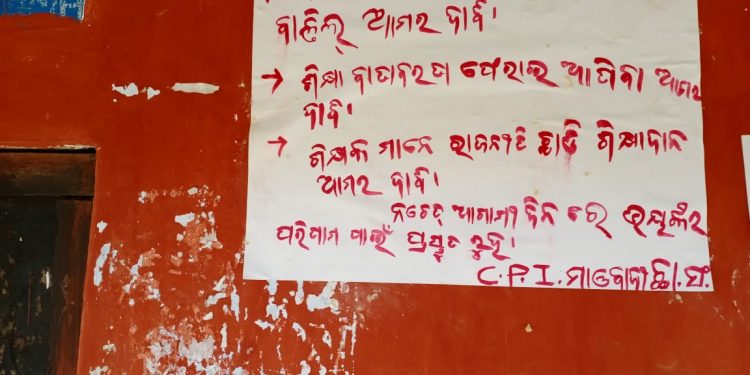 ବାତିଲ୍ ଆମର ଦାବି।
→ ଶିକ୍ଷା ବାତାବରଣ ଫେରାଇ ଆଣିବା ଆମର
ଦାବି।
→ ଶିକ୍ଷକ ମାନେ ରାଜନୀତି ଛାଡି ଶିକ୍ଷାଦାନ
ଆମର ଦାବି।
ନଚେତ୍ ଆଗାମୀ ଦିନ ରେ ଭୟଙ୍କର
ପରିଣାମ ପାଇଁ ପ୍ରସ୍ତୁତ ରୁହ।
C.P.I. ମାଓବାଦୀ